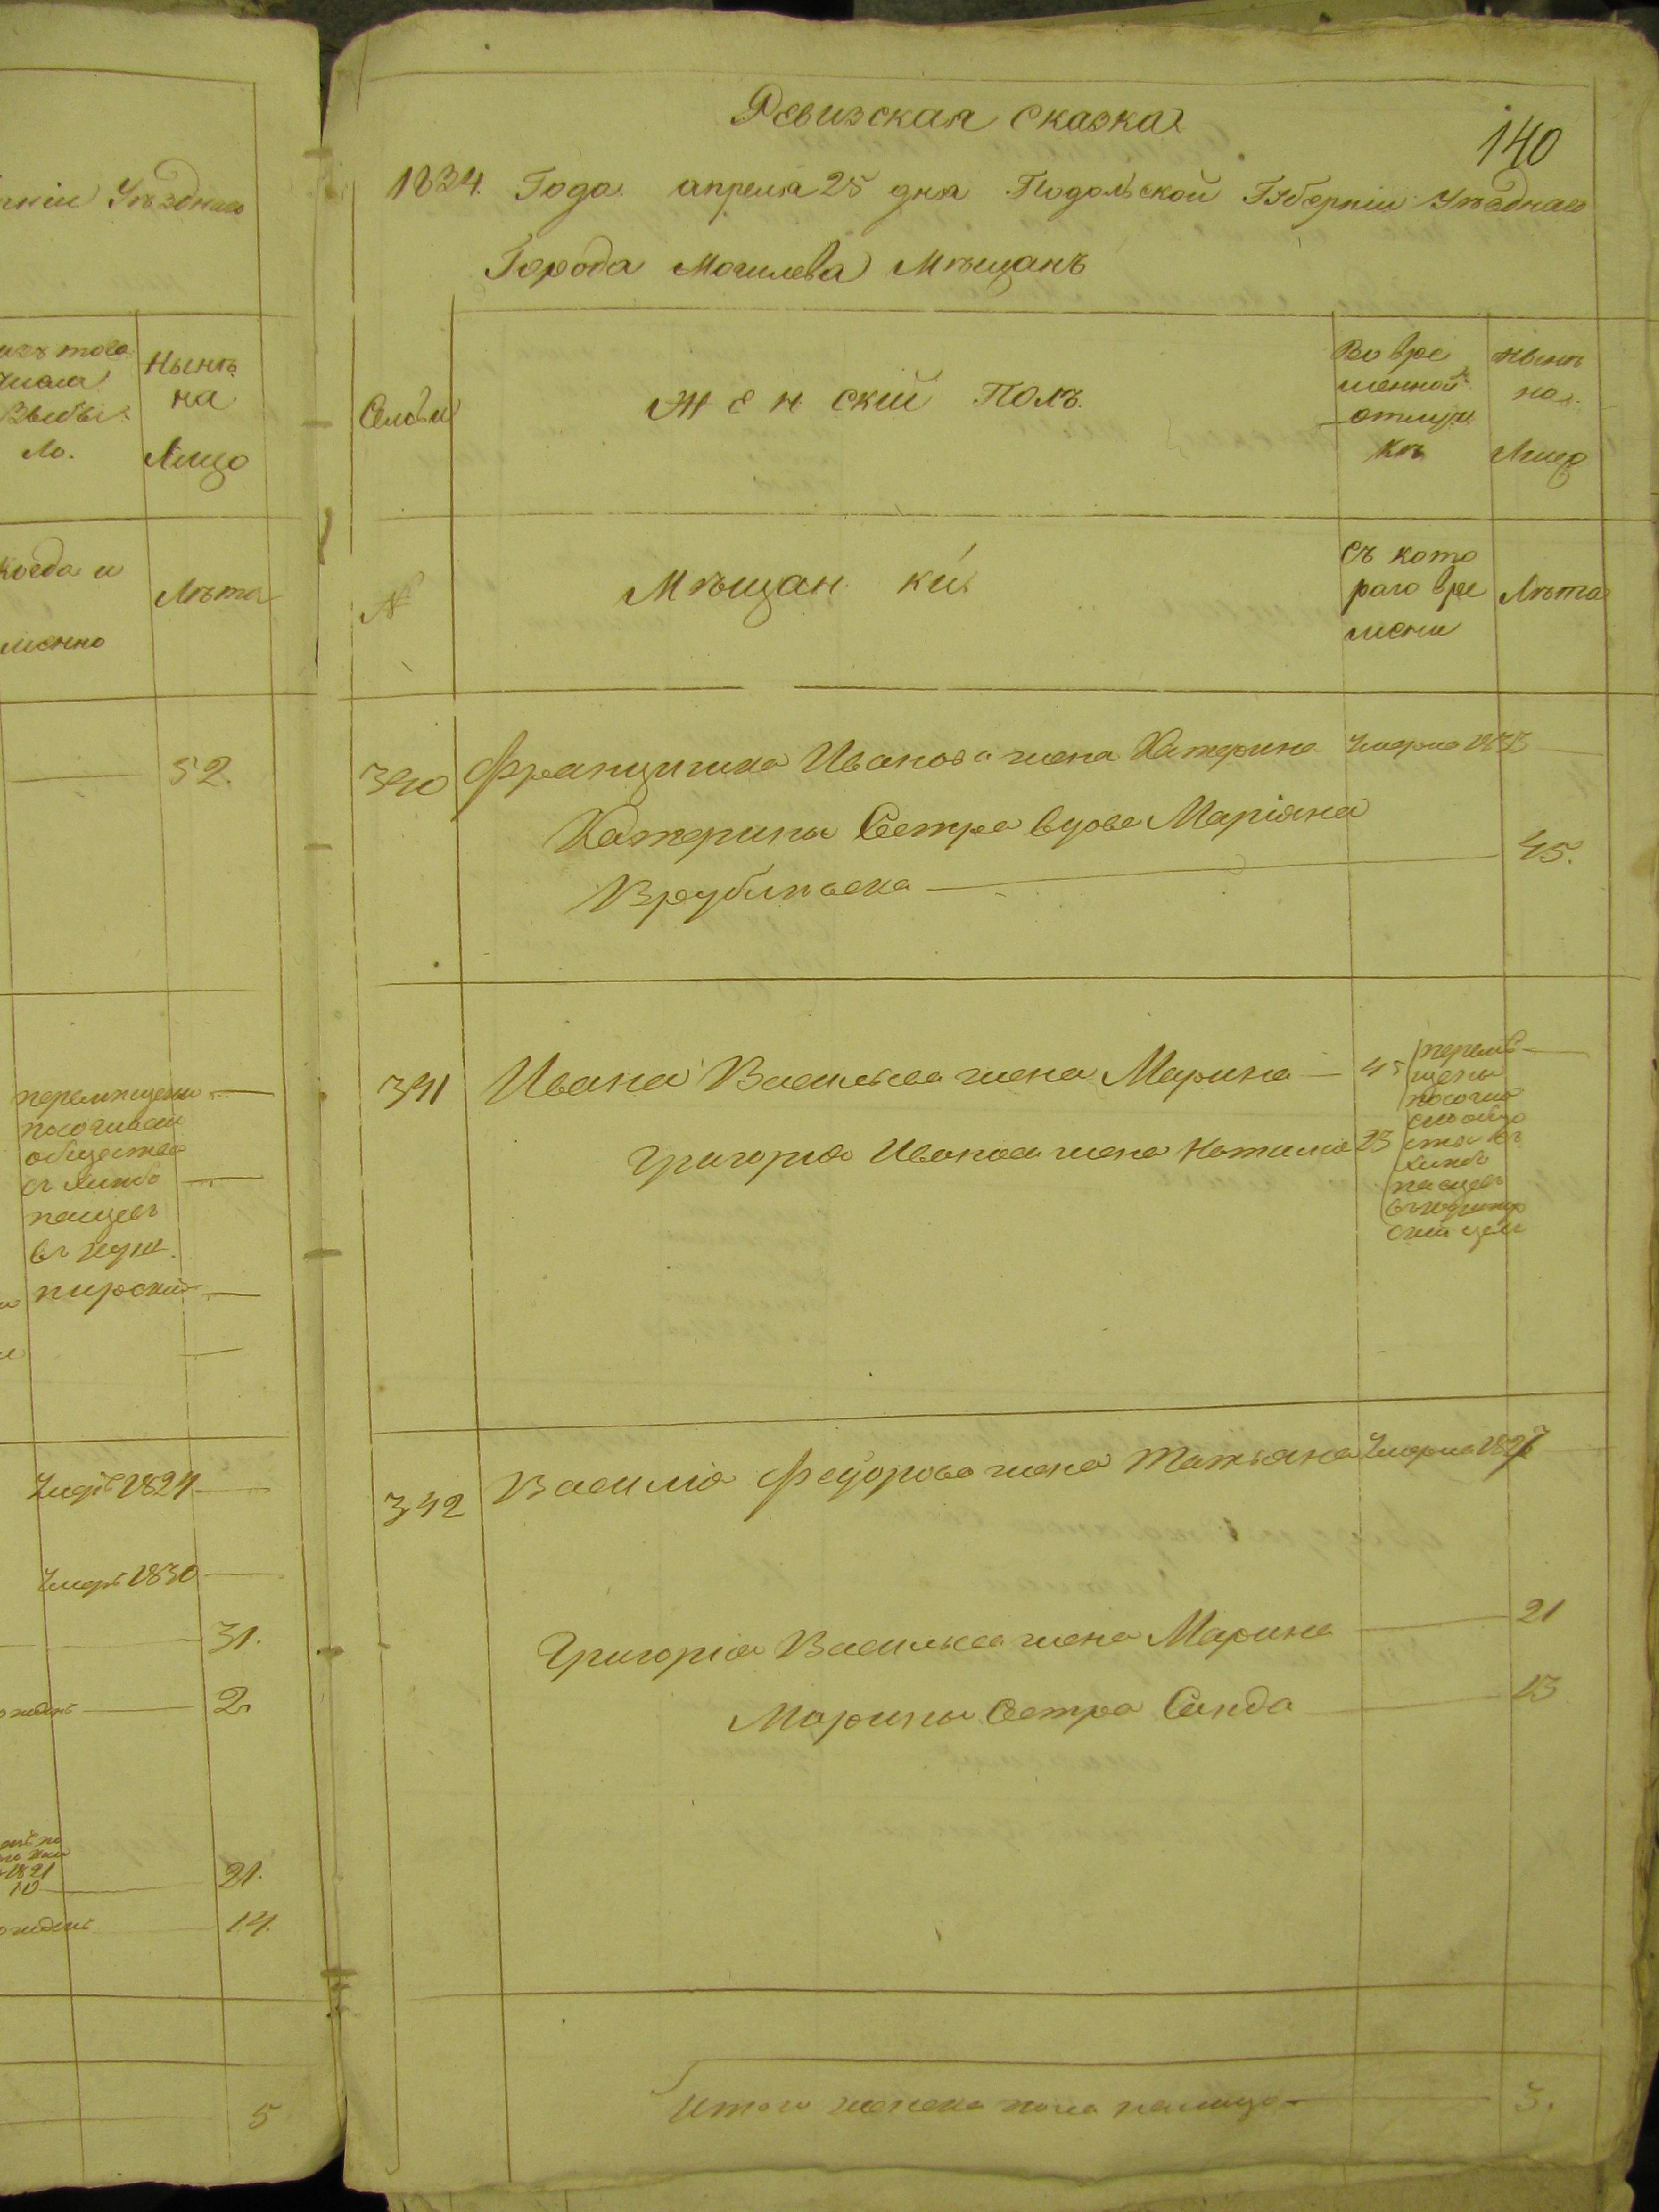 рніи Уѣзднаго
изъ того
числа
выбы
ло.
Нынѣ
на
Лицо
когда и
менно
Лѣта
52.
перемѣщены
общества
въ
31.
Умеръ 1824
Умеръ 1830
2
1821
10
21.
14.
5
Ревизская сказка
140
1834. Года апреля 25 дня Подольской Губерніи Уѣзднаго
Города Могилева Мѣщанъ
Семьи
Женскій Полъ.
Во вре
менной
отлуч
кѣ
Нынѣ
на.
Лицо
№
Мѣщанки
Съ кото
раго вре
мени
Лѣта
340 Францишка Иванова жена Катерина Умерла
Катерины Сестра вдова Маріяна
45.
341 Ивана Васильева жена Марина — 45
Григорія Иванова жена 23
перемѣ
щены
342 Василія Федорова жена Татьяна Умерла
Григорія Васильева жена Марина 21
Марины Сестра Санда 13
Итого женска пола налицо 3.